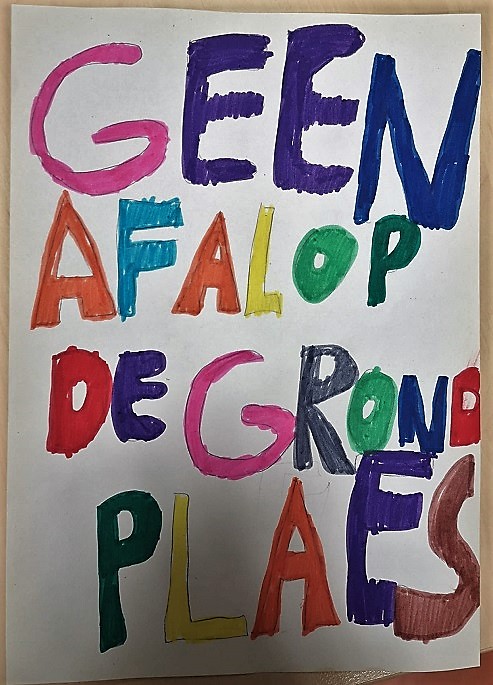 GEEN
AFALOP
DE GROND
PLAES